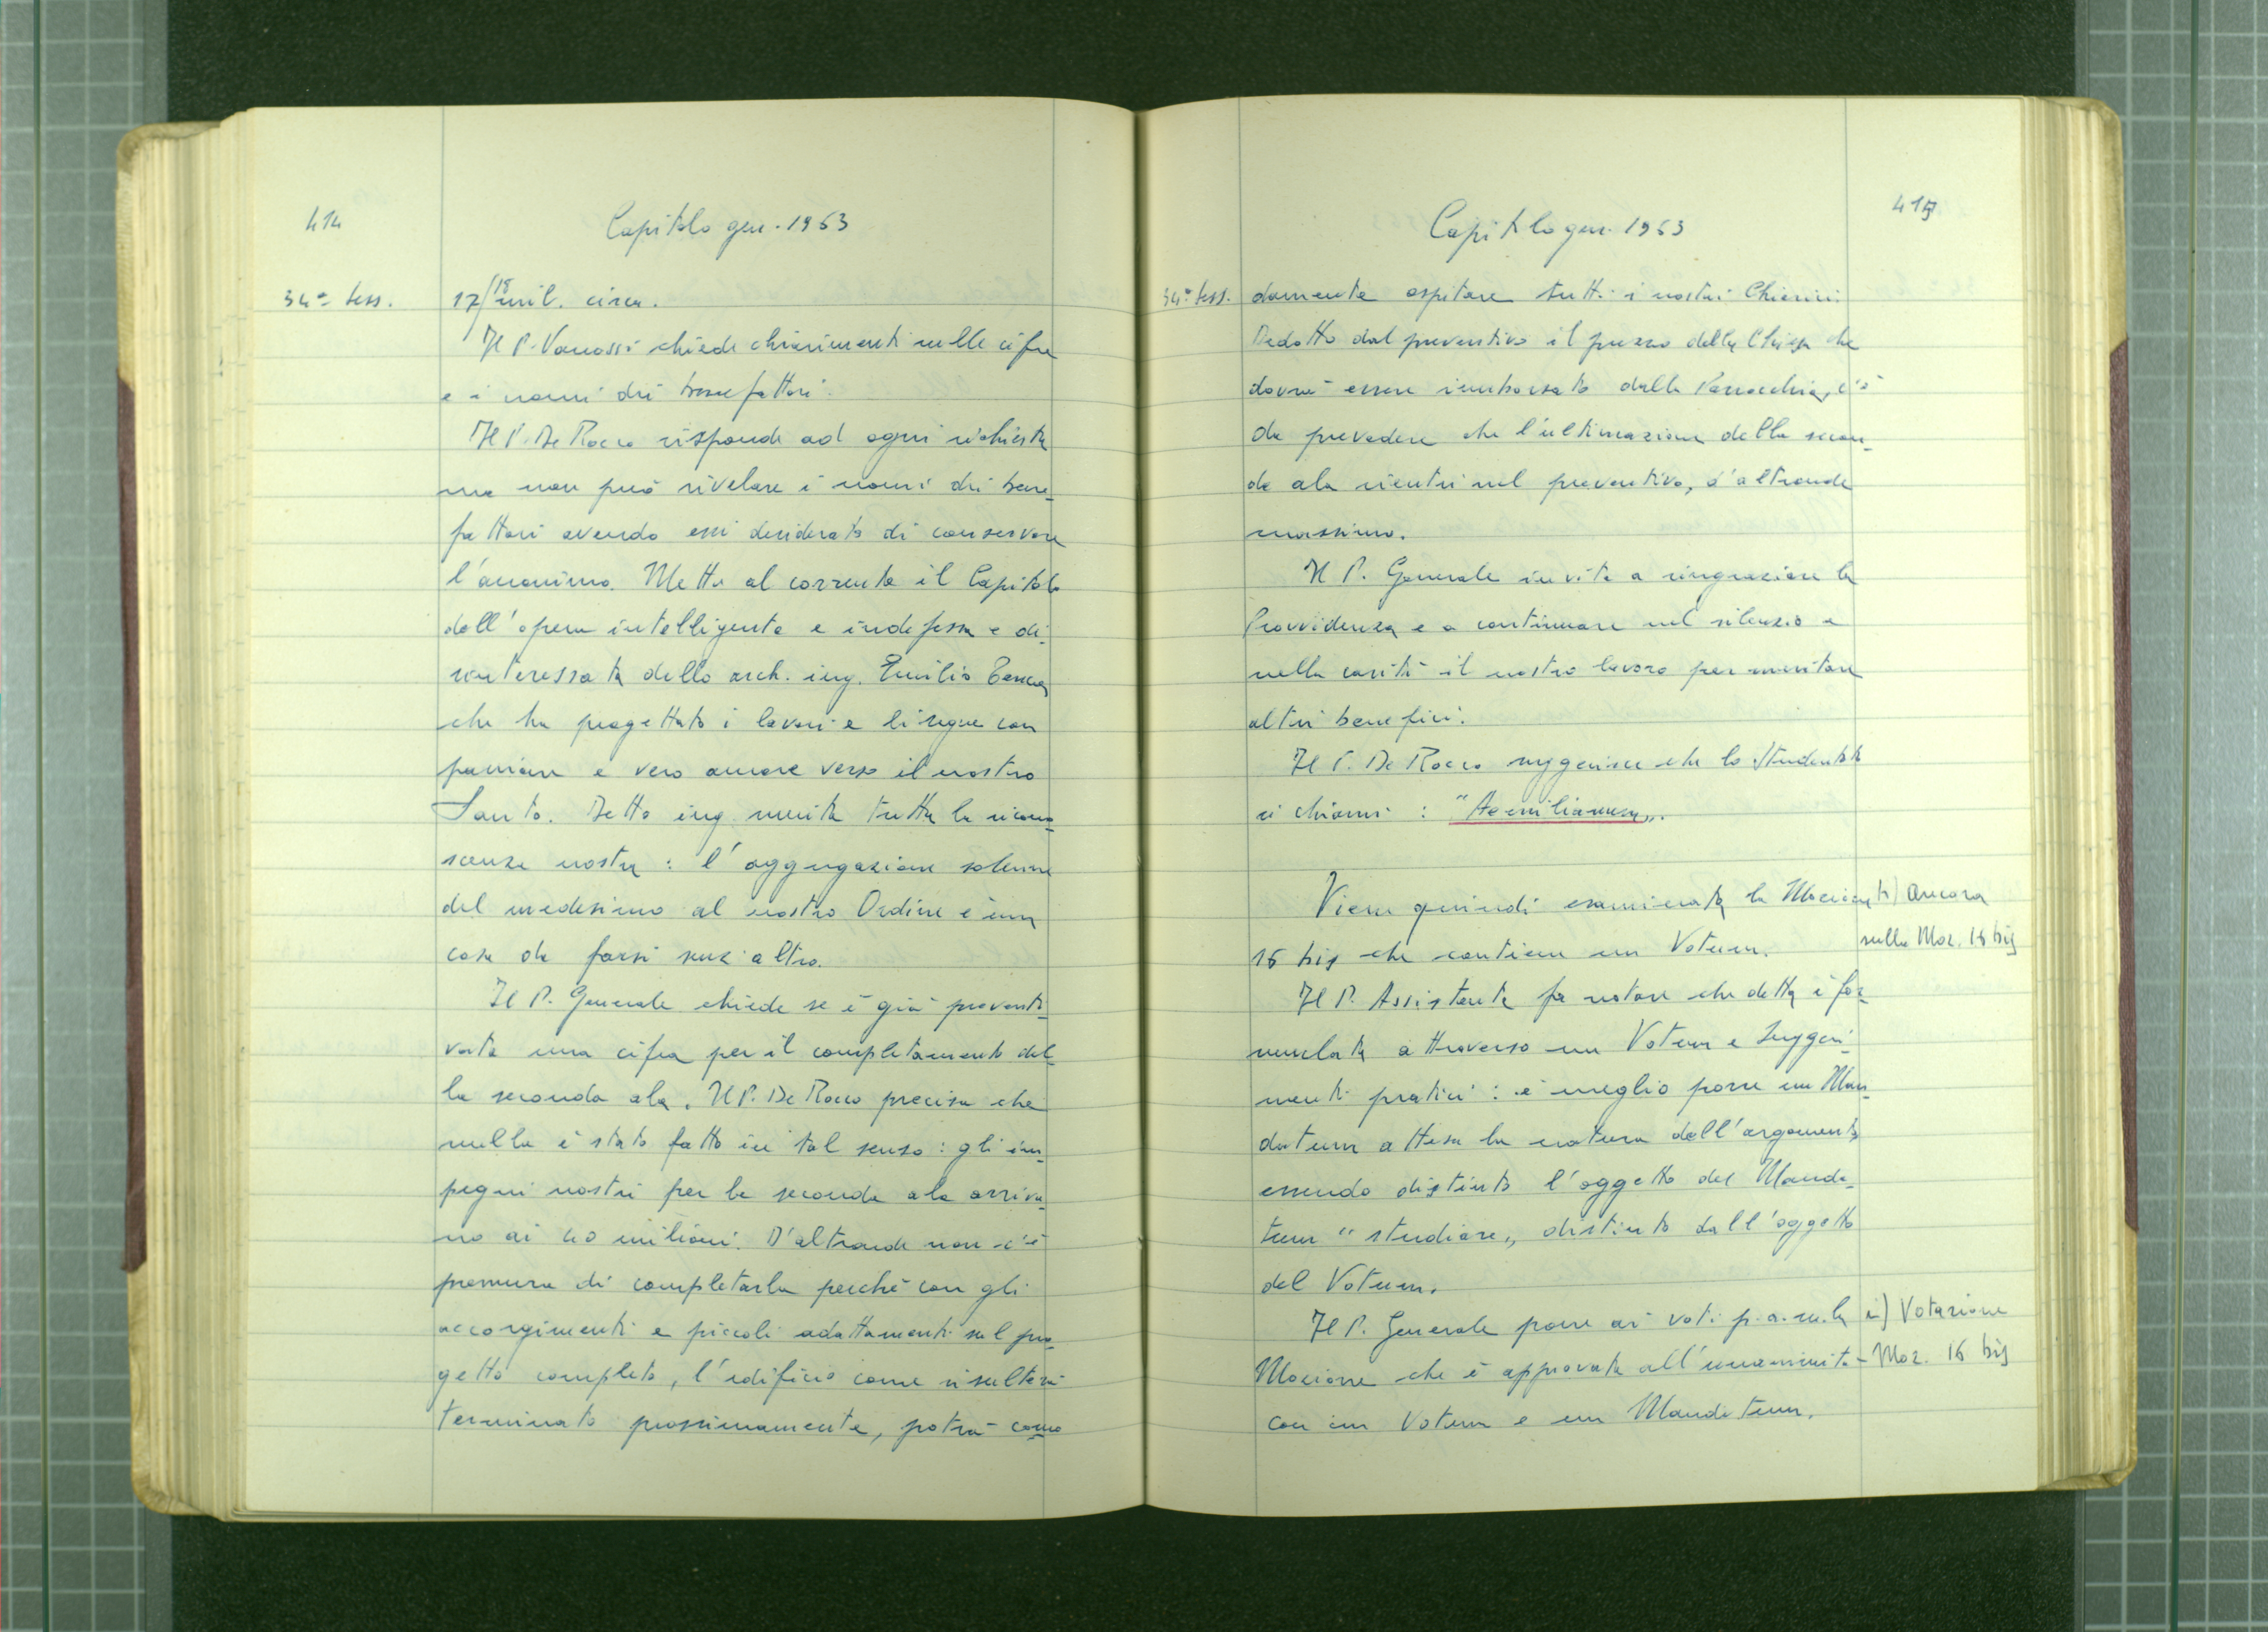 414
Capitolo gen. 1963
34ª sess.
17/18 mil. circa.
Il P. Vanossi chiede chiarimenti sulle cifre
e i nomi dei benefattori.
Il P. De Rocco risponde ad ogni richiesta
ma non può rivelare i nomi dei bene-
fattori avendo essi desiderato di conservare
l'anonimo. Mette al corrente il Capitolo
dell'opera intelligente e indefessa e di-
sinteressata dello arch. ing. Emilio
che ha progettato i lavori e li segue con
passione e vero amore verso il nostro
Santo. Detto ing. merita tutta la ricono-
scenza nostra: l'aggregazione solenne
del medesimo al nostro Ordine è una
cosa da farsi senz'altro.
Il P. Generale chiede se è già preventi-
vata una cifra per il completamento del-
la seconda ala. Il P. De Rocco precisa che
nulla è stato fatto in tal senso: gli im-
pegni nostri per la seconda ala arriva-
no ai 40 milioni. D'altronde non c'è
premura di completarla perchè con gli
accorgimenti e piccoli adattamenti sul pro-
getto completo, l'edificio come risulterà
terminato prossimamente, potrà como-
415
Capitolo gen. 1963
34ª sess.
damente ospitare tutti i nostri Chierici.
Dedotto dal preventivo il prezzo della Chiesa che
dovrà essere rimborsato dalla Parrocchia, c'è
da prevedere che l'ultimazione della secon-
da ala rientri nel preventivo, d'altronde
massimo.
Il P. Generale invita a ringraziare la
Provvidenza e a continuare nel silenzio e
nella carità il nostro lavoro per meritare
altri benefici.
Il P. De Rocco suggerisce che lo Studentato
si chiami: "Aemilianum".
Viene quindi esaminata la Mozione
h) ancora
16 bis che contiene un Votum.
sulla Moz. 16 bis
Il P. Assistente fa notare che detta è for-
mulata attraverso un Votum e Suggeri-
menti pratici: è meglio porre un Man-
datum attesa la natura dell'argomento
essendo distinto l'oggetto del Manda-
tum "studiare" distinto dall'oggetto
del Votum.
Il P. Generale pone ai voti p.a.m. la
i) Votazione
Mozione che è approvata all'unanimità
- Moz. 16 bis
con un Votum e un Mandatum.